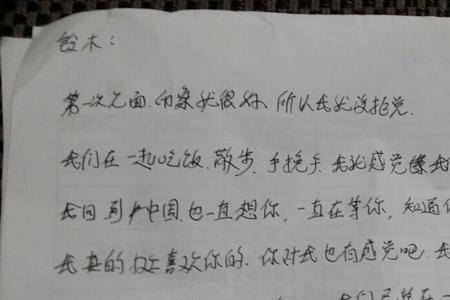 铃木：
第一次见面，印象就很好，所以我就没拒绝。
我们在一起吃饭，散步，手挽手，我就感觉像我
我回到中国也一直想你，一直在等你，知道
我真的好喜欢你的，你对我也有感觉吧，我
我们已经在一